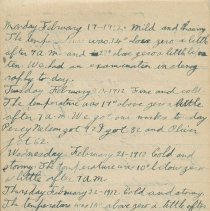 Monday February 19-1912. Mild and thawing
The temp was 34° above zero a little
after 7 a.m. and 29° above zero a little
ten We had an examination in steno
graphy to day.
Tuesday February 20-1912 Fine and cold
The temperature was 14° above zero a little
after 7 a.m. We got our marks to day
Percy Nelson got 92 I got 82 and Oliver
got 62.
Wednesday February 21-1912 Cold and
stormy The temperature was 10° below zero
a little after 7 a.m.
Thursday February 22-1912 Cold and stormy.
The temperature was 10° above zero a little after